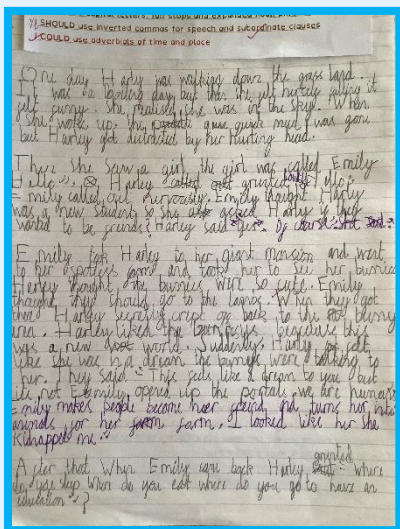 SHOULD use inverted commas for speech and subordinate clauses
COULD use adverbials of time and place
One day Harley was walking down the grass
It was a boiling day but then she felt falling it
felt funny. She realised she was in the sky. When
she woke up. she was gone
but Harley got distracted by her hurting head.
Then she saw a girl the girl was called Emily
Hello". Harley called grunted
Emily called out nervously. Emily thought Harley
was a new student so she asked Harley if her
wanted to be friends? Harley said yes". Of course
Emily took Harley to her giant mansion and went
to her spotless and took her to see her bunnies
Harley thought the bunnies were so cute. Emily
thought they should go to the When they got
Harley secretly crept back to the bunny
area. Harley liked the because this
was a new world. Suddenly Harley felt
like she was in a dream the bunnys were talking to
her. They said "This feels like a dream to you but
its not Eemily opened up the portals, we are humans
Emily makes people become her friend and turns her into
animals for her farm. I looked like her she
kidnapped me."
After that When Emily came back Harley grunted where
do you sleep when do you eat where do you go to have an
education"?